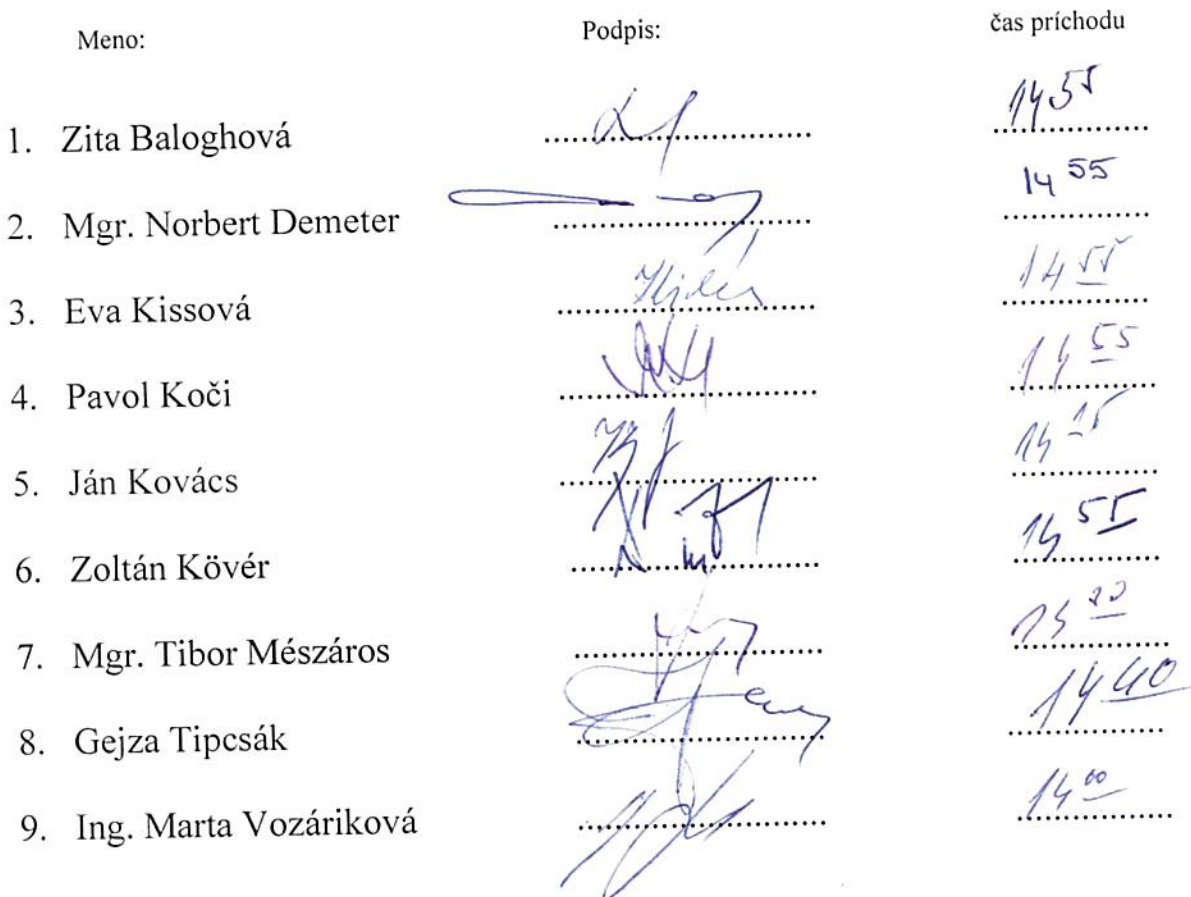 Meno: Podpis: čas príchodu
1. Zita Baloghová .............................. 14 55
2. Mgr. Norbert Demeter .............................. 14 55
3. Eva Kissová .............................. 14 55
4. Pavol Koči .............................. 14 55
5. Ján Kovács ..............................
6. Zoltán Kövér .............................. 14 55
7. Mgr. Tibor Mészáros ..............................
8. Gejza Tipcsák .............................. 14 40
9. Ing. Marta Vozáriková .............................. 14 00